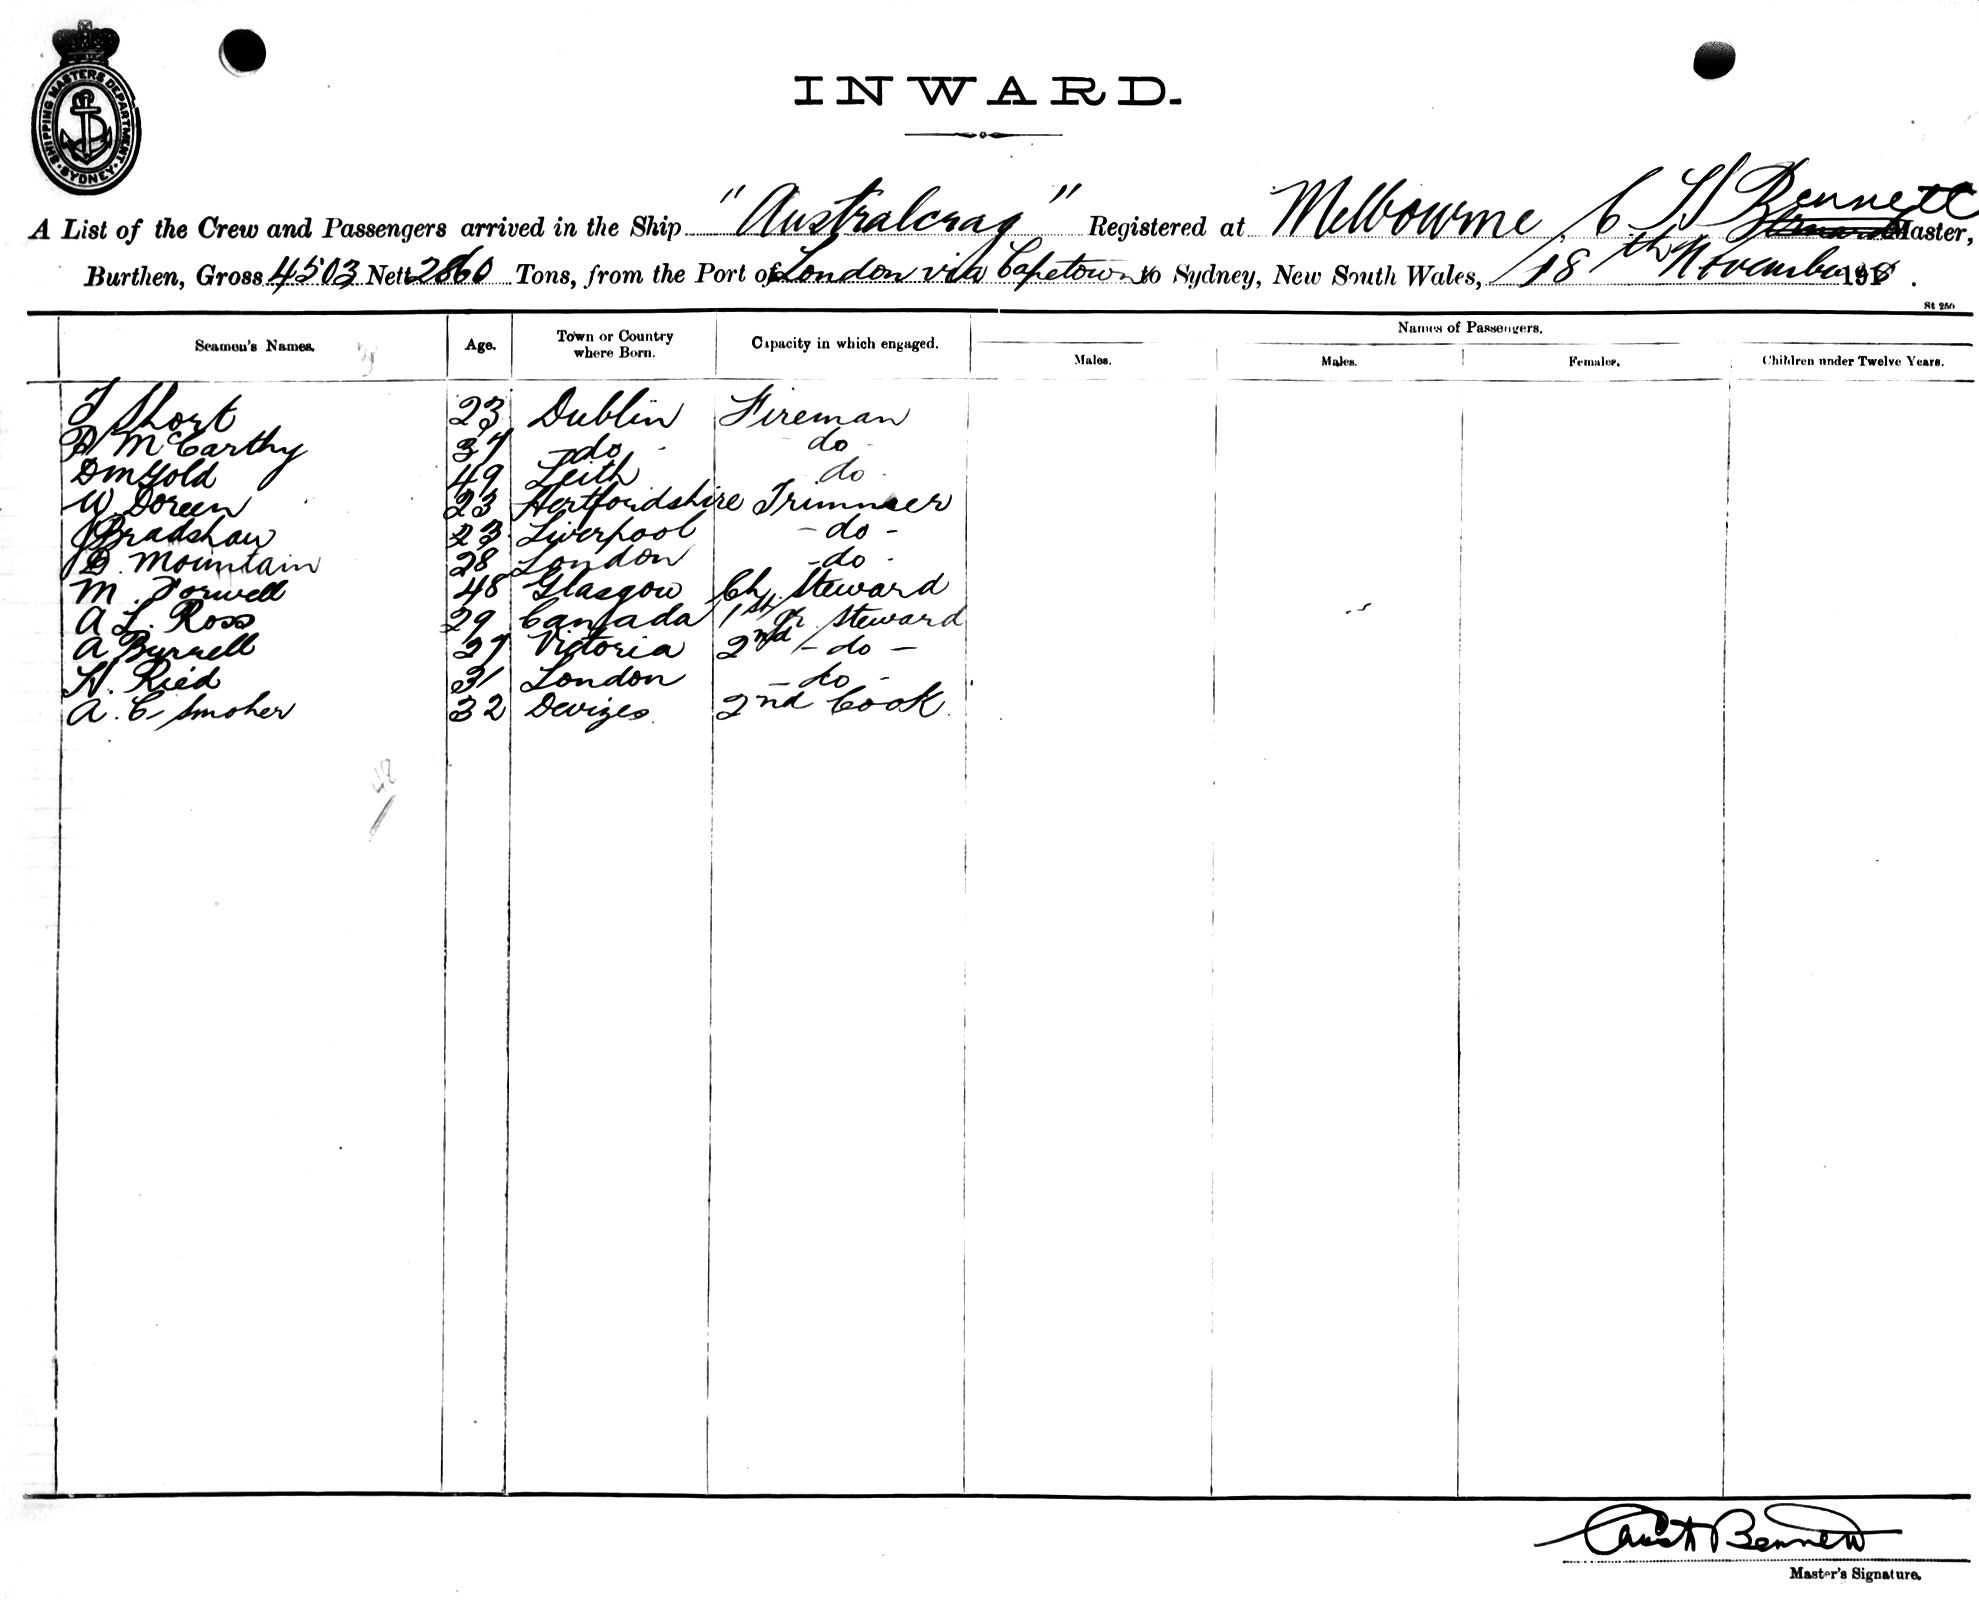 SHIPPING MASTERS DEPARTMENT · SYDNEY ·
INWARD.
A List of the Crew and Passengers arrived in the Ship "Australcrag" Registered at Melbourne, C. H Bennett Master,
Burthen, Gross 4503 Nett 2860 Tons, from the Port of London via Capetown to Sydney, New South Wales, 18th November 1918.
St 250
Seamen's Names. Age. Town or Country where Born. Capacity in which engaged. Names of Passengers.
Males. Males. Females. Children under Twelve Years.
T Short 23 Dublin Fireman
D McCarthy 37 - do - - do -
D McGold 49 Leith do -
W. Doreen 23 Hertfordshire Trimmer
J Bradshaw 23 Liverpool - do -
D. Mountain 28 London - do -
M. Forwell 48 Glasgow Ch. Steward
A L. Ross 29 Canada 1st Steward
A Burrell 27 Victoria 2nd - do -
H. Ried 31 London - do -
A. C Smoher 32 Devizes 2nd Cook
48
Bennett
Master's Signature.